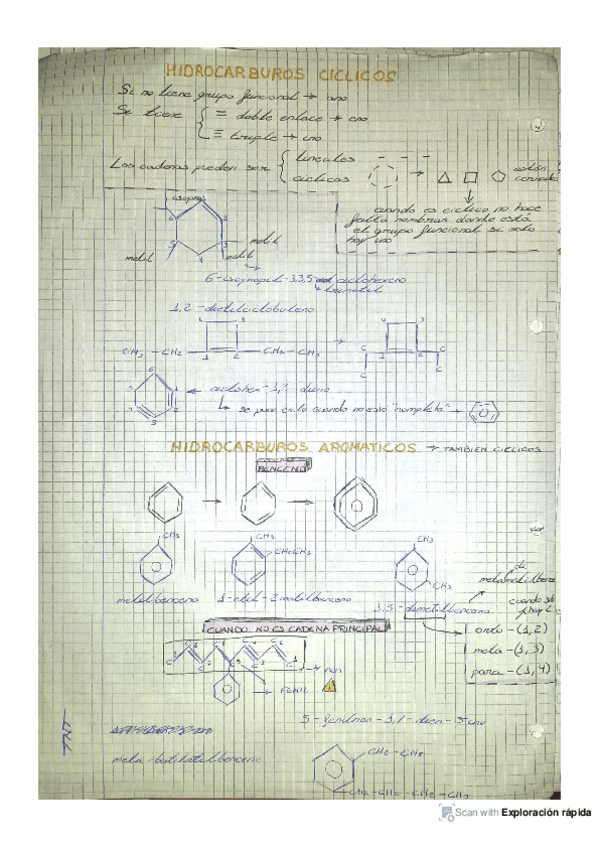 HIDROCARBUROS CICLICOS
Si no tiene grupo funcional → ano
Si tiene = doble enlace → eno
≡ triple → ino
Las cadenas pueden ser lineales
cíclicas → están
cuando es cíclico no hace
falta nombrar donde está
el grupo funcional si solo
hay uno
isopropil
metil
metil
metil
6-isopropil-3,3,5 ciclohexeno
trimetil
1,2-dietilciclobuteno
4 3
CH3 - CH2 1 2 CH2 - CH3
ciclohex-1,3-dieno
se pone ciclo cuando no está "completo" →
HIDROCARBUROS AROMATICOS → TAMBIEN CICLICOS
BENCENO
CH3
CH3
CH2CH3
CH3
CH3
metilbenceno
1-etil-2-metilbenceno
1,3-dimetilbenceno
cuando solo
orto-(1,2)
meta-(1,3)
para-(1,4)
CUANDO NO ES CADENA PRINCIPAL
→ non
→ FENIL
TNT
meta-butiletilbenceno
CH2 - CH3
CH2 - CH2 - CH2 - CH3
Scan with Exploración rápida